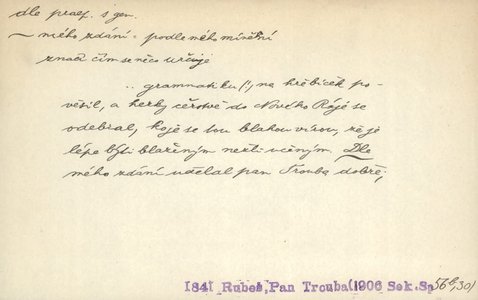 dle praep. s gen.
~ mého zdání = podle mého mínění
značí čím se něco určuje
.. grammatiku (!) na hřebíček po-
věsil, a herby čerstvě do Nového Ráje se
odebral, koje se tou blahou vírou, že je
lépe býti blaženým nežli učeným. Dle
mého zdání udělal pan Trouba dobře;
1841 Rubeš, Pan Trouba (1906 Sek. Sp. 56b, 30)